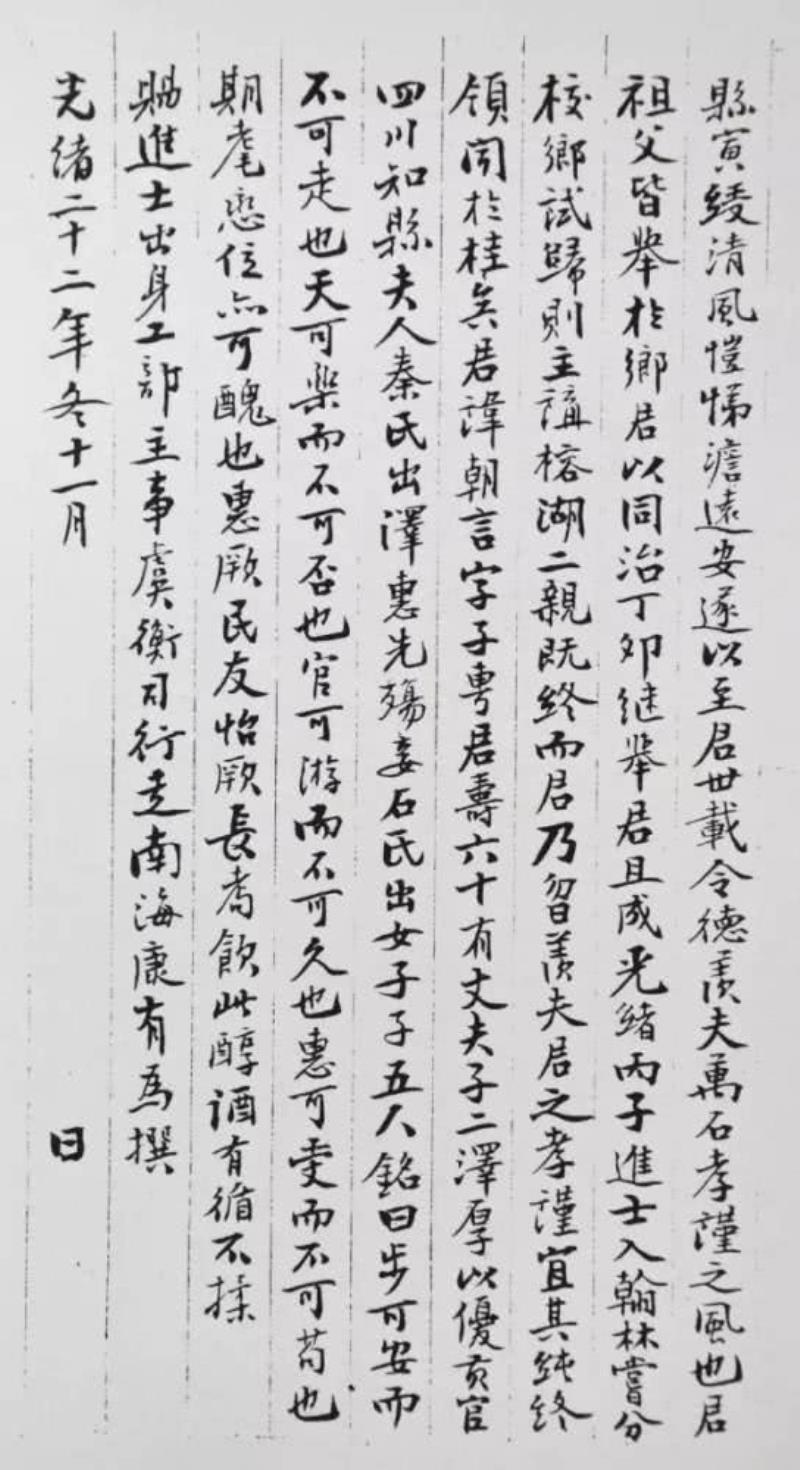 縣寅綾清風愷悌澹遠安遂以至君世載令德羨夫萬石孝謹之風也君
祖父皆舉於鄉君以同治丁卯继舉君且成光緒丙子進士入翰林嘗分
校鄉試歸則主講榕湖二親既終而君乃曶羨夫君之孝謹宜其純終
領聞於桂矣君諱朝言字子專君壽六十有丈夫子二澤厚以優貢官
四川知縣夫人秦氏出澤惠先殤妾石氏出女子子五人銘曰步可安而
不可走也天可樂而不可否也官可游而不可久也惠可受而不可苟也
期耄戀位亦可醜也惠厥民友怡厥長耇飲此醇酒有循不揉
賜進士出身工部主事虞衡司行走南海康有為撰
光緒二十二年冬十一月 日